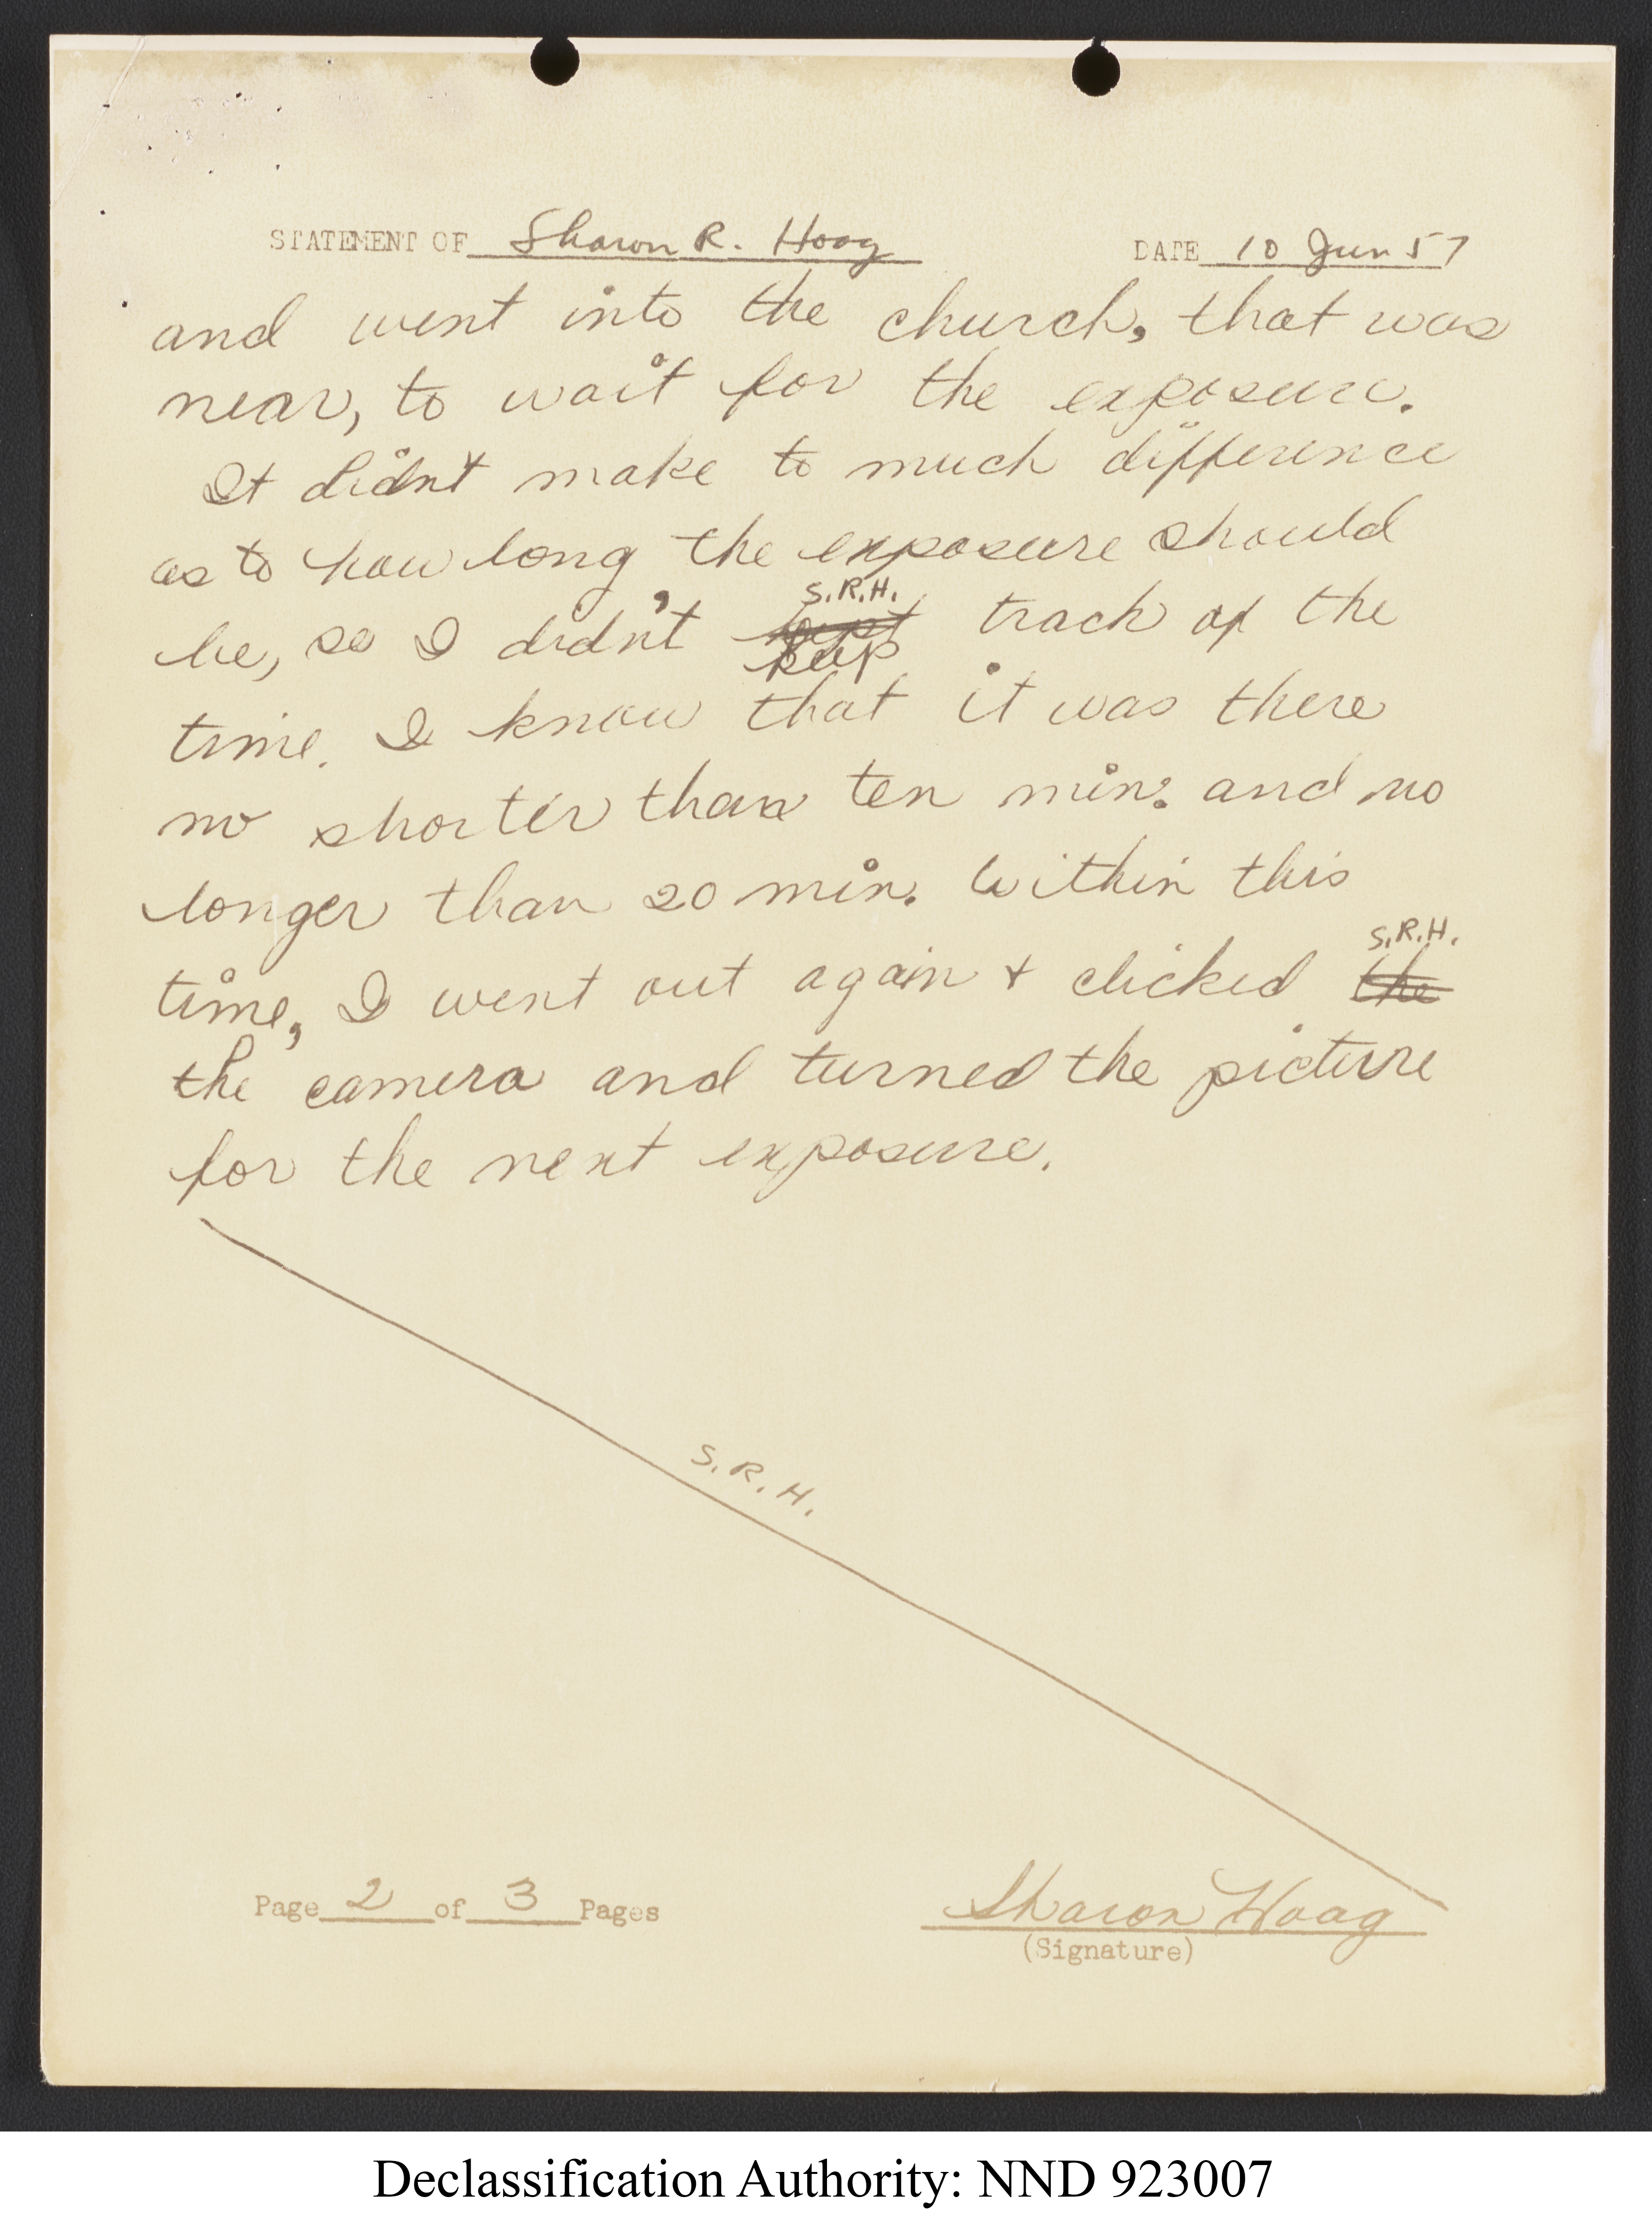 STATEMENT OF Sharon R. Hoag DATE 10 Jun 57
and went into the church, that was
near, to wait for the exposure.
It didnt make to much difference
as to how long the exposure should
S.R.H.
be, so I didn't kept track of the
keep
time. I know that it was there
no shorter than ten min. and no
longer than 20 min. Within this
S.R.H.
time, I went out again & clicked the
the camera and turned the picture
for the next exposure.
S.R.H.
Page 2 of 3 Pages Sharon Hoag
(Signature)
Declassification Authority: NND 923007